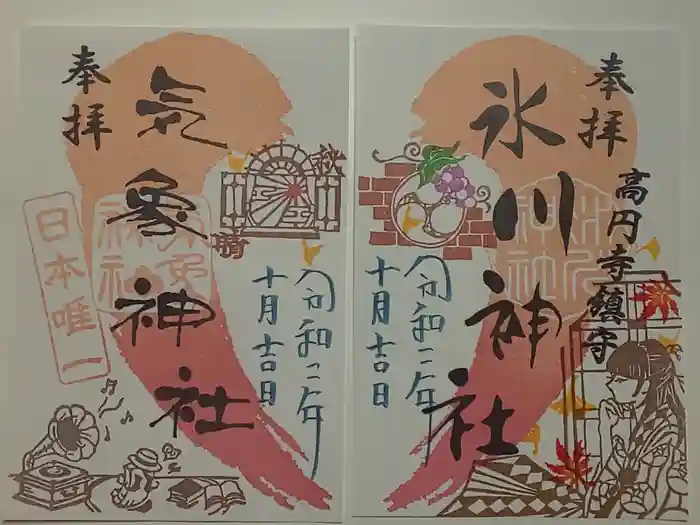 奉拝
高円寺鎮守
氷川神社
令和二年
十月吉日
奉拝
気象神社
秋
晴
令和二年
十月吉日
日本唯一